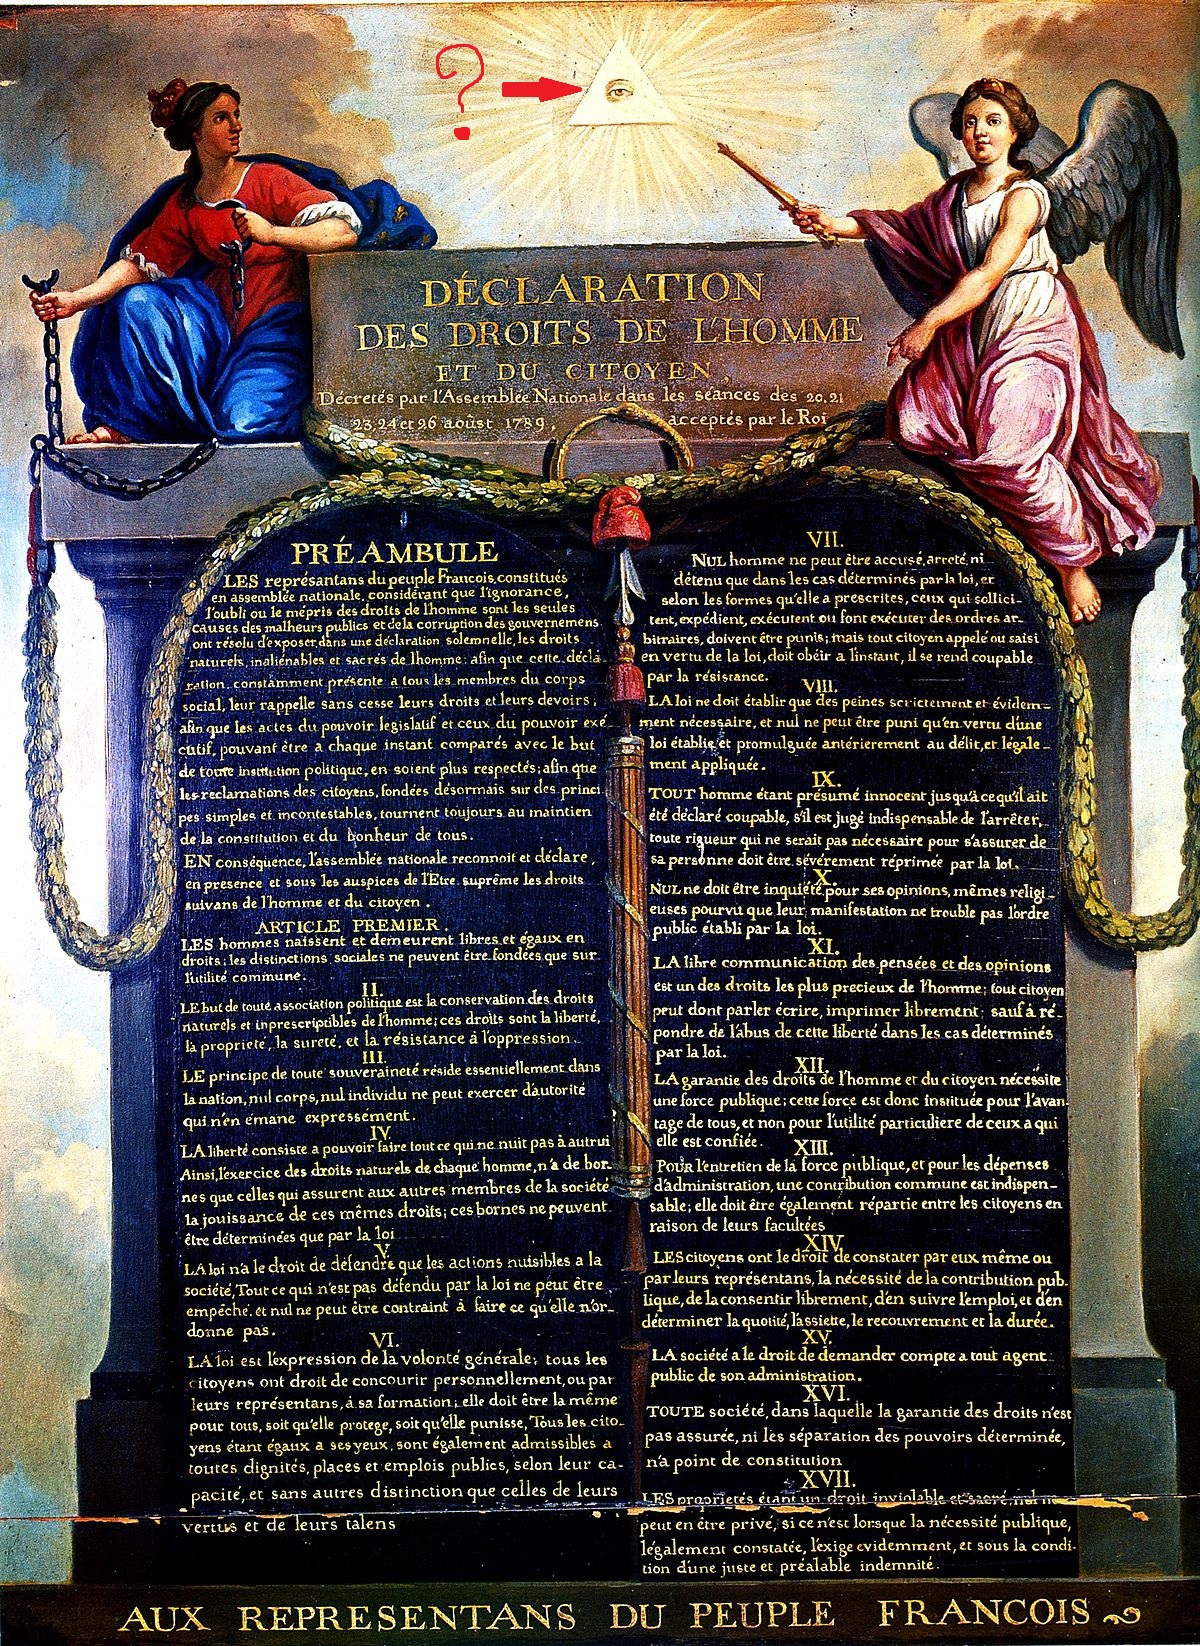 ?
DÉCLARATION
DES DROITS DE L'HOMME
ET DU CITOYEN,
Décretés par l'Assemblée Nationale dans les séances des 20, 21
23, 24 et 26 aoùst 1789, acceptés par le Roi
PRÉAMBULE
LES représantans du peuple Francois, constitués
en assemblée nationale, considérant que l'ignorance,
l'oubli ou le mépris des droits de l'homme sont les seules
causes des malheurs publics et de la corruption des gouvernemens
ont résolu d'exposer dans une déclaration solemnelle, les droits
naturels, inaliénables et sacrés de l'homme: afin que cette décla-
ration, constamment présente a tous les membres du corps
social, leur rappelle sans cesse leurs droits et leurs devoirs;
afin que les actes du pouvoir legislatif et ceux du pouvoir exé-
cutif, pouvant être a chaque instant comparés avec le but
de toute institution politique, en soient plus respectés; afin que
les reclamations des citoyens, fondées désormais sur des princi
pes simples et incontestables, tournent toujours au maintien
de la constitution et du bonheur de tous.
EN conséquence, l'assemblée nationale reconnoit et déclare,
en presence et sous les auspices de l'Etre suprême les droits
suivans de l'homme et du citoyen.
ARTICLE PREMIER.
LES hommes naissent et demeurent libres et égaux en
droits; les distinctions sociales ne peuvent être fondées que sur
l'utilité commune.
II.
LE but de toute association politique est la conservation des droits
naturels et inprescriptibles de l'homme; ces droits sont la liberté,
la propriete, la sureté, et la résistance à l'oppression.
III.
LE principe de toute souveraineté réside essentiellement dans
la nation, nul corps, nul individu ne peut exercer d'autorité
qui n'en émane expressément.
IV.
LA liberté consiste a pouvoir faire tout ce qui ne nuit pas à autrui
Ainsi, l'exercice des droits naturels de chaque homme, n'a de bor-
nes que celles qui assurent aux autres membres de la société
la jouissance de ces mêmes droits; ces bornes ne peuvent
être déterminées que par la loi
V.
LA loi n'a le droit de défendre que les actions nuisibles a la
société, Tout ce qui n'est pas défendu par la loi ne peut être
empêché, et nul ne peut être contraint à faire ce qu'elle n'or-
donne pas.
VI.
LA loi est l'expression de la volonté générale; tous les
citoyens ont droit de concourir personnellement, ou par
leurs représentans, à sa formation; elle doit être la même
pour tous, soit qu'elle protege, soit qu'elle punisse, Tous les cito-
yens étant égaux a ses yeux, sont également admissibles a
toutes dignités, places et emplois publics, selon leur ca-
pacité, et sans autres distinction que celles de leurs
vertus et de leurs talens
VII.
NUL homme ne peut être accusé, arreté, ni
détenu que dans les cas déterminés par la loi, et
selon les formes qu'elle a prescrites, ceux qui sollici-
tent, expédient, exécutent ou font exécuter des ordres ar-
bitraires, doivent être punis; mais tout citoyen appelé ou saisi
en vertu de la loi, doit obéir a l'instant, il se rend coupable
par la résistance.
VIII.
LA loi ne doit établir que des peines strictement et évidem-
ment nécessaire, et nul ne peut être puni qu'en vertu d'une
loi établie et promulguée antérierement au délit, et légale-
ment appliquée.
IX.
TOUT homme étant présumé innocent jusqu'a ce qu'il ait
été déclaré coupable, s'il est jugé indispensable de l'arrêter,
toute rigueur qui ne serait pas nécessaire pour s'assurer de
sa personne doit être sévérement réprimée par la loi.
X.
NUL ne doit être inquiété pour ses opinions, mêmes religi
euses pourvu que leur manifestation ne trouble pas l'ordre
public établi par la loi.
XI.
LA libre communication des pensées et des opinions
est un des droits les plus precieux de l'homme; tout citoyen
peut dont parler écrire, imprimer librement; sauf à ré-
pondre de l'abus de cette liberté dans les cas déterminés
par la loi.
XII.
LA garantie des droits de l'homme et du citoyen nécessite
une force publique; cette force est donc instituée pour l'avan
tage de tous, et non pour l'utilité particuliere de ceux a qui
elle est confiée.
XIII.
POUR l'entretien de la force publique, et pour les dépenses
d'administration, une contribution commune est indispen-
sable; elle doit être également répartie entre les citoyens en
raison de leurs facultées
XIV.
LES citoyens ont le droit de constater par eux même ou
par leurs représentans, la nécessité de la contribution pub-
lique, de la consentir librement, d'en suivre l'emploi, et d'en
déterminer la quotité, l'assiette, le recouvrement et la durée.
XV.
LA société a le droit de demander compte a tout agent
public de son administration.
XVI.
TOUTE société, dans laquelle la garantie des droits n'est
pas assurée, ni les séparation des pouvoirs déterminée,
n'a point de constitution
XVII.
LES proprietés étant un droit inviolable et sacré, nul ne
peut en être privé, si ce n'est lorsque la nécessité publique,
légalement constatée, l'exige evidemment, et sous la condi-
tion d'une juste et préalable indemnité.
AUX REPRESENTANS DU PEUPLE FRANCOIS